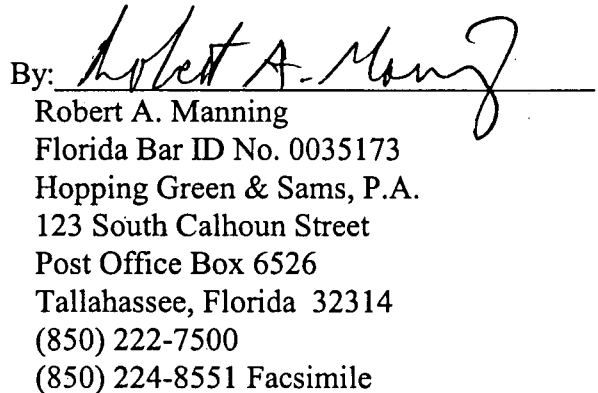 By: Robert A. Manning
Robert A. Manning
Florida Bar ID No. 0035173
Hopping Green & Sams, P.A.
123 South Calhoun Street
Post Office Box 6526
Tallahassee, Florida 32314
(850) 222-7500
(850) 224-8551 Facsimile